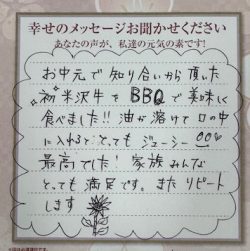 幸せのメッセージお聞かせください
あなたの声が、私達の元気の素です!
お中元で知り合いから頂いた
初米沢牛をBBQで美味しく
食べました!!油が溶けて口の中
に入れると、とってもジューシー
最高でした!家族みんな
とっても満足です。またリピート
します